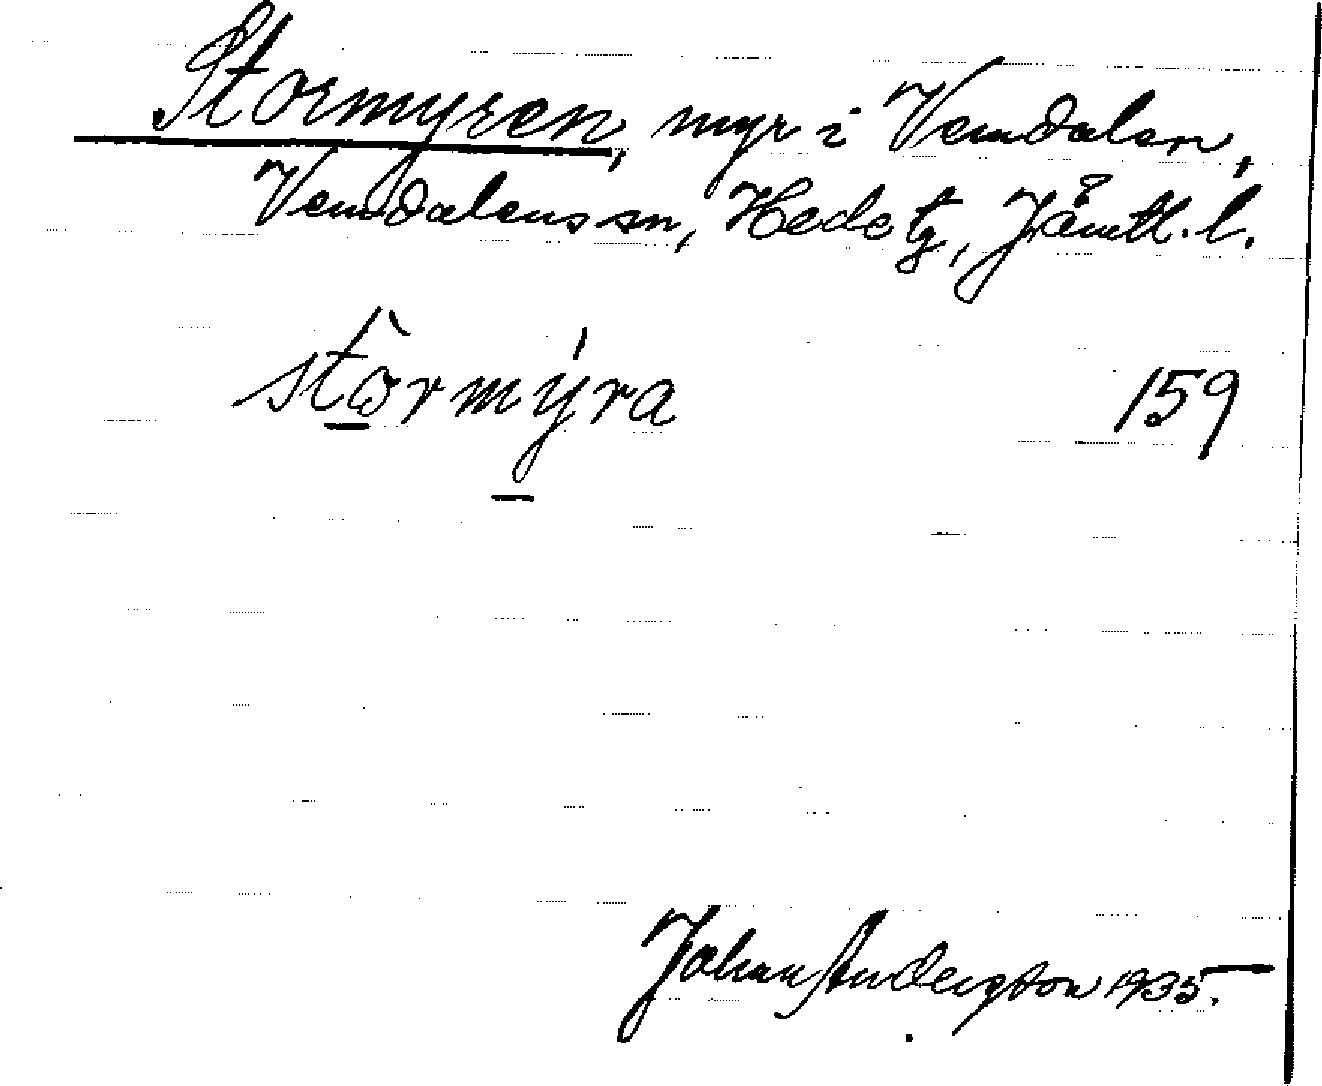 Stormyren, myr i Vemdalen,
Vemdalens sn, Hede tg, Jämtl. l.
stò̱rmý̱ra 159
Johan Anderson 1935.